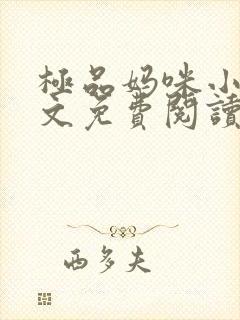 極品妈咪小
文免費閱讀
西多夫